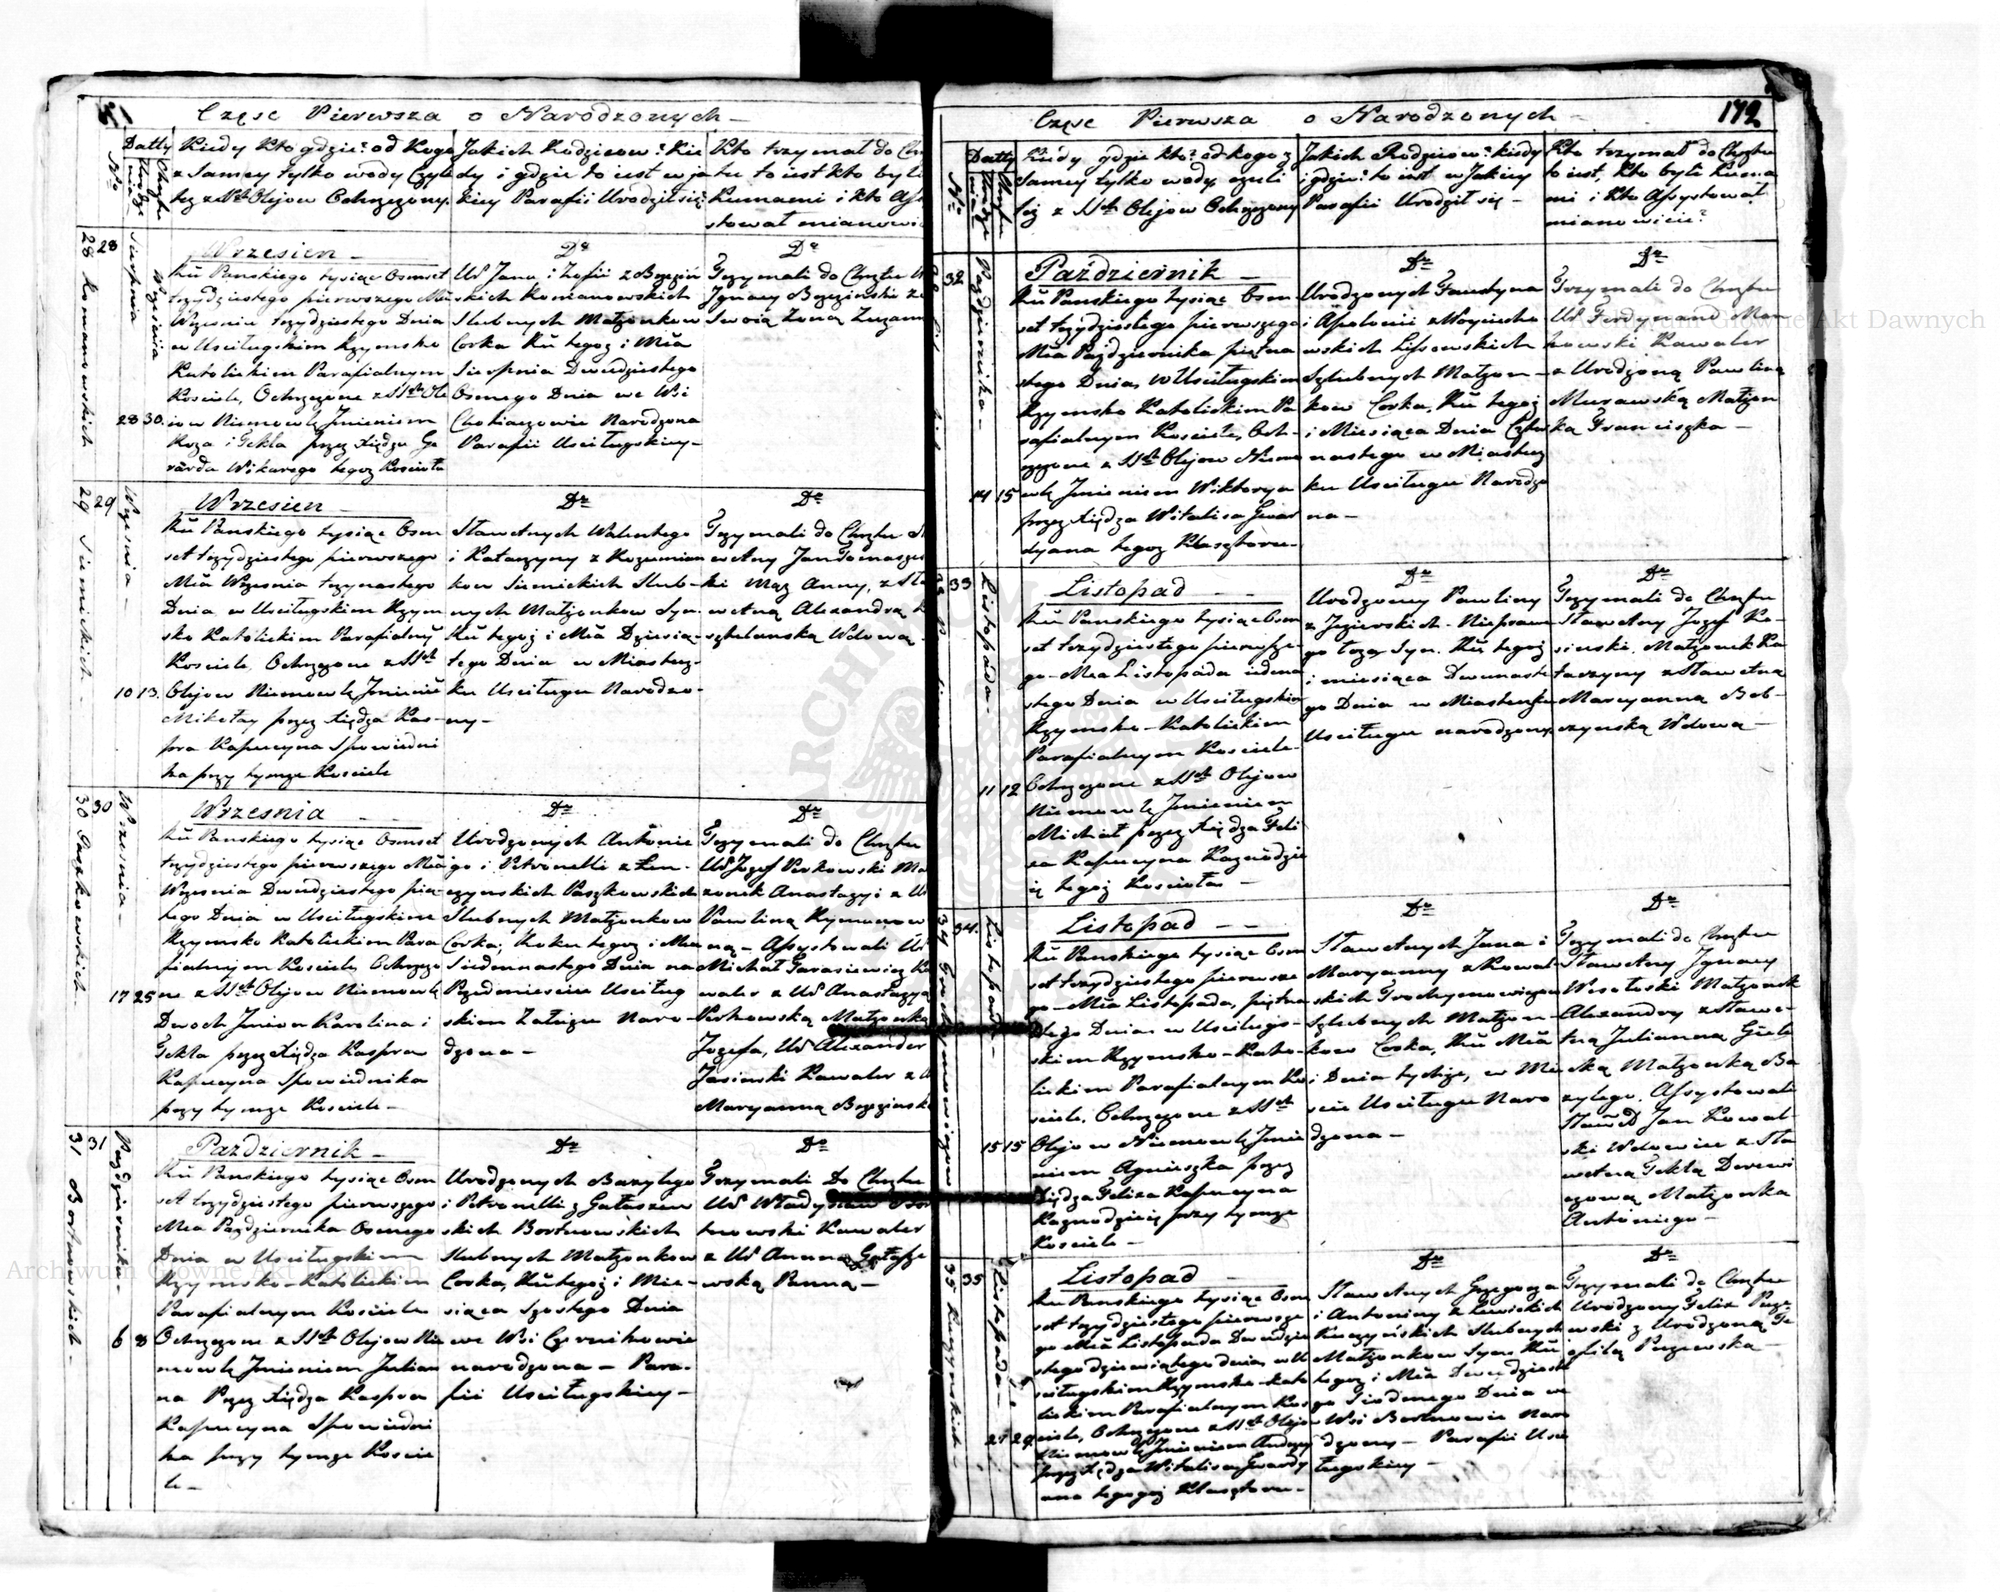 Część Pierwsza o Narodzonych –
Datty
Kiedy Kto gdzie? od Kogo
z Samey tylko wody Czyli
też z SStch Olejow Ochrzczony.
Jakich Rodzicow? Kie
dy i gdzie to iest w ja
kiey Parafii Urodził się
Kto trzymał do Ch
tu to iest kto byli
Kumami i kto Assy
stował mianowi
28 28
Romanowskich
Sierpnia
Września
28 30.
Wrzesien –
Ru Panskiego tysiąc Osmset
trzydziestego pierwszego Mia
Wrzesnia trzydziestego Dnia
w Usciługskim Rzymsko
Katolickim Parafialnym
Kosciele, Ochrzczone z SStch Ole
iow Niemowlę Jmieniem
Roza i Tekla przez Xiędza Ge
rarda Wikarego tegoz Koscioła
Dtto
Ur Jana i Zofii z Brzeziń
skich Romanowskich
Slubnych Małzonkow
Corka Ru tegoz i Mia
Sierpnia Dwudziestego
Osmego Dnia we Wsi
Chotiaczowie Narodzona
Parafii Usciługskiey –
Dtto
Trzymali do Chrztu
Ignacy Brzezinski z
Swoią Zoną Zuzann
29 29
Siemickich –
Wrzesnia –
10 13.
Wrzesien
Ru Panskiego tysiąc Osm
set trzydziestego pierwszego
Mia Wrzesnia trzynastego
Dnia w Usciługskim Rzym
sko Katolickim Parafialny
Kosciele, Ochrzczone z SStch
Olejow Niemowlę Jmieniē
Mikołay przez Xiędza Kas–
pra Kapucyna Spowiedni
ka przy tymze Kosciele
Dtto
Sławetnych Walentego
i Katarzyny z Rozumian
kow Siemickich Slub–
nych Małzonkow Syn.
Ru tegoz i Mia Dziesią–
tego Dnia w Miastecz–
ku Usciługu Narodzo–
ny –
Dtto
Trzymali do Chrztu S
wetny Jan Tomaszes
ki Mąz Anny, z Sła
wetną Alexandrą
Wdową
30 30
Paszkowskich
Wrzesnia –
17 25
Wrzesnia
Ru Panskiego tysiąc Osmset
trzydziestego pierwszego Mia
Wrzesnia Dwudziestego pią
tego Dnia w Usciługskim
Rzymsko Katolickim Para
fialnym Kosciele, Ochrzczo
ne z SStch Olejow Niemowlę
Dwoch Jmion Karolina i
Tekla przez Xiędza Kaspra
Kapucyna Spowiednika
przy tymze Kosciele –
Dtto
Urodzonych Antonie
go i Petronelli z Łen–
czynskich Paszkowskich
Slubnych Małzonkow
Corka, Roku tegoz i Mia
Siedmnastego Dnia na
Przedmiesciu Usciług
skim Załugu Naro–
dzona –
Dtto
Trzymali do Chrztu
Ur Jozef Perkowski Ma
zonek Anastazyi z U
Pawliną Rymonow
ną – Assystowali Ur
Michał Tarasiewicz Ka
waler z Ur Anastazyą
Perkowską Małzonką
Jozefa, Ur Alexander
Jasinski Kawaler z
Maryanną Brzezinską
31 31
Bortnowskich –
Pazdziernika –
6 8
Pazdziernik –
Ru Panskiego tysiąc Osm
set trzydziestego pierwszego
Mca Pazdziernika Osmego
Dnia w Usciługskim
Rzymsko – Katolickim
Parafialnym Kosciele
Ochrzczone z SStch Olejow Nie
mowlę Jmieniem Julian
na Przez Xiędza Kaspra
Kapucyna Spowiedni
ka przy tymze Koscie
le –
Dtto
Urodzonych Bazylego
i Petronelli z Gałaszew
skich Bortnowskich
slubnych Małzonkow
Corka, Ru tegoz i Mie–
siąca Szostego Dnia
we Wsi Czernikowie
narodzona – Para–
fii Usciługskiey –
Dtto
Trzymali Do Chrztu
Ur Władysław
nowski Kawaler
z Ur Anną Gałasze
wską Panną –
172
Część Pierwsza o Narodzonych –
Datty
Kiedy gdzie kto? od kogo z
Samey tylko wody, czyli
też z SStch Olejow Ochrzczony
Jakich Rodzicow? kiedy
i gdzie? to iest w Jakiey
Parafii Urodził się –
Kto trzymał do Chrztu
to iest, Kto byli Kuma
mi i Kto Assystował
mianowicie?
32
Pazdziernika –
14 15
Pazdziernik –
Ru Panskiego tysiąc Osm
set trzydziestego pierwszego
Mia Pazdziernika piętna
stego Dnia, w Usciługskim
Rzymsko Katolickim Pa
rafialnym Kosciele, Och–
rzczone z SStch Olejow Niemo
wlę Jmieniem Wiktorya
przez Xiędza Witalisa Gwar
dyana tegoz Klasztoru –
Dtto
Urodzonych Faustyna
i Apolonii z Woyciecho
wskich Lissowskich
Szlubnych Małzon–
kow Corka, Ru tegoz
i Miesiąca Dnia Czter
nastego w Miastecz
ku Usciługu Narodzo
na –
Dtto
Trzymali do Chrztu
Ur Ferdynand Ma–
kowski Kawaler
z Urodzoną Pawliną
Murawską Małzon
ką Franciszka –
33
Listopada –
11 12
Listopad – –
Ru Panskiego tysiąc Osm
set trzydziestego pierwsze
go – Mca Listopada iedena
stego Dnia w Usciługskim
Rzymsko – Katolickim
Parafialnym Kosciele
Ochrzczone z SStch Olejow
Niemowlę Jmieniem
Michał przez Xiędza Feli
xa Kapucyna Kaznodzie
ię tegoz Koscioła –
Dtto
Urodzoney Pawliny
z Jezierskich – Niepraw
go Łoza Syn. Ru tegoz
i miesiąca Dwunaste
go Dnia w Miasteczku
Usciługu narodzony.
Dtto
Trzymali do Chrztu
Sławetny Jozef Ko–
sinski, Małzonek Ka
tarzyny z Sławetną
Maryanną Bob–
czynską Wdową –
34 34.
Listopada –
15 15
Listopad – –
Ru Panskiego tysiąc Osm
set trzydziestego pierwsze
go – Mia Listopada, piętna
stego Dnia w Usciługs–
kim Rzymsko – Kato–
lickim Parafialnym Ko
sciele, Ochrzczone z SStch
Olejow Niemowlę Jmie
niem Agnieszka przez
Xiędza Felixa Kapucyna
Kaznodzieię przy tymze
Kosciele –
Dtto
Sławetnych Jana i
Maryanny z Kowal–
skich Trochymowiczow
Szlubnych Małzon–
kow Corka, Ru Mia
i Dnia tychze, w Mie
scie Usciługu Naro
dzona –
Dtto
Trzymali do Chrztu
Sławetny Ignacy
Wesołoski Małzonek
Alexandry z Sławe–
tną Julianną Giele
cką Małzonką Ba
zylego. Assystowali
Sławet Jan Kowal–
ski Wdowiec z Sła
wetną Teklą Derewi
czową Małzonką
Antoniego –
35 35
Kuczynskich –
Listopada –
27 29
Listopad –
Ru Panskiego tysiąc Osm
set trzydziestego pierwsze
go Mia Listopada Dwudzie
stego dziewiątego dnia, w U
sciługskim Rzymsko – Kato
lickim Parafialnym Kos
ciele, Ochrzczone z SStch Olejo
Niemowlę Jmieniem Andrzey
przez Xiędza Witalisa Gwardy
ana tegoz Klasztoru –
Dtto
Sławetnych Grzegorza
i Antoniny z Lewickich
Kuczyńskich Slubnych
Małzonkow Syn. Ru
tegoz i Mia Dwudzieste
go Siodmego Dnia we
Wsi Bortnowie Naro
dzony – Parafii Usci
ługskiey –
Dtto
Trzymali do Chrztu
Urodzony Felix Puze–
wski z Urodzoną Te
ofilą Puzewską –
Archiwum Główne Akt Dawnych
Archiwum Główne Akt Dawnych